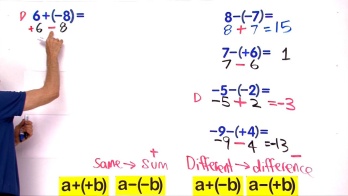 D 6+(-8)=
+6 - 8
8-(-7)=
8 + 7 = 15
7-(+6)= 1
7 - 6
D -5-(-2)=
-5 + 2 = -3
-9-(+4)=
-9 - 4 = -13
Same → sum +
Different → difference -
a+(+b) a-(-b) a+(-b) a-(+b)